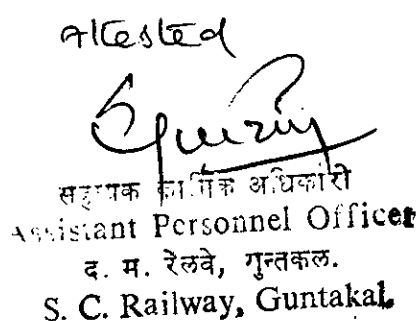 Attested
सहायक कार्मिक अधिकारी
Assistant Personnel Officer
द. म. रेलवे, गुन्तकल.
S. C. Railway, Guntakal.